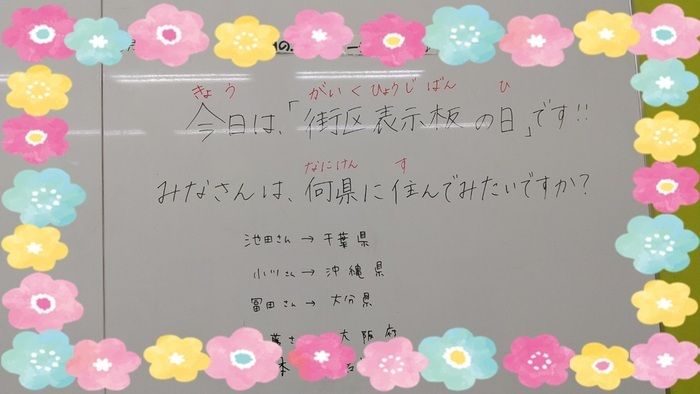 きょう がいくひょうじばん ひ
今日は、「街区表示板の日」です!!
なにけん す
みなさんは、何県に住んでみたいですか?
池田さん → 千葉県
小川さん → 沖縄県
冨田さん → 大分県
大阪府
本